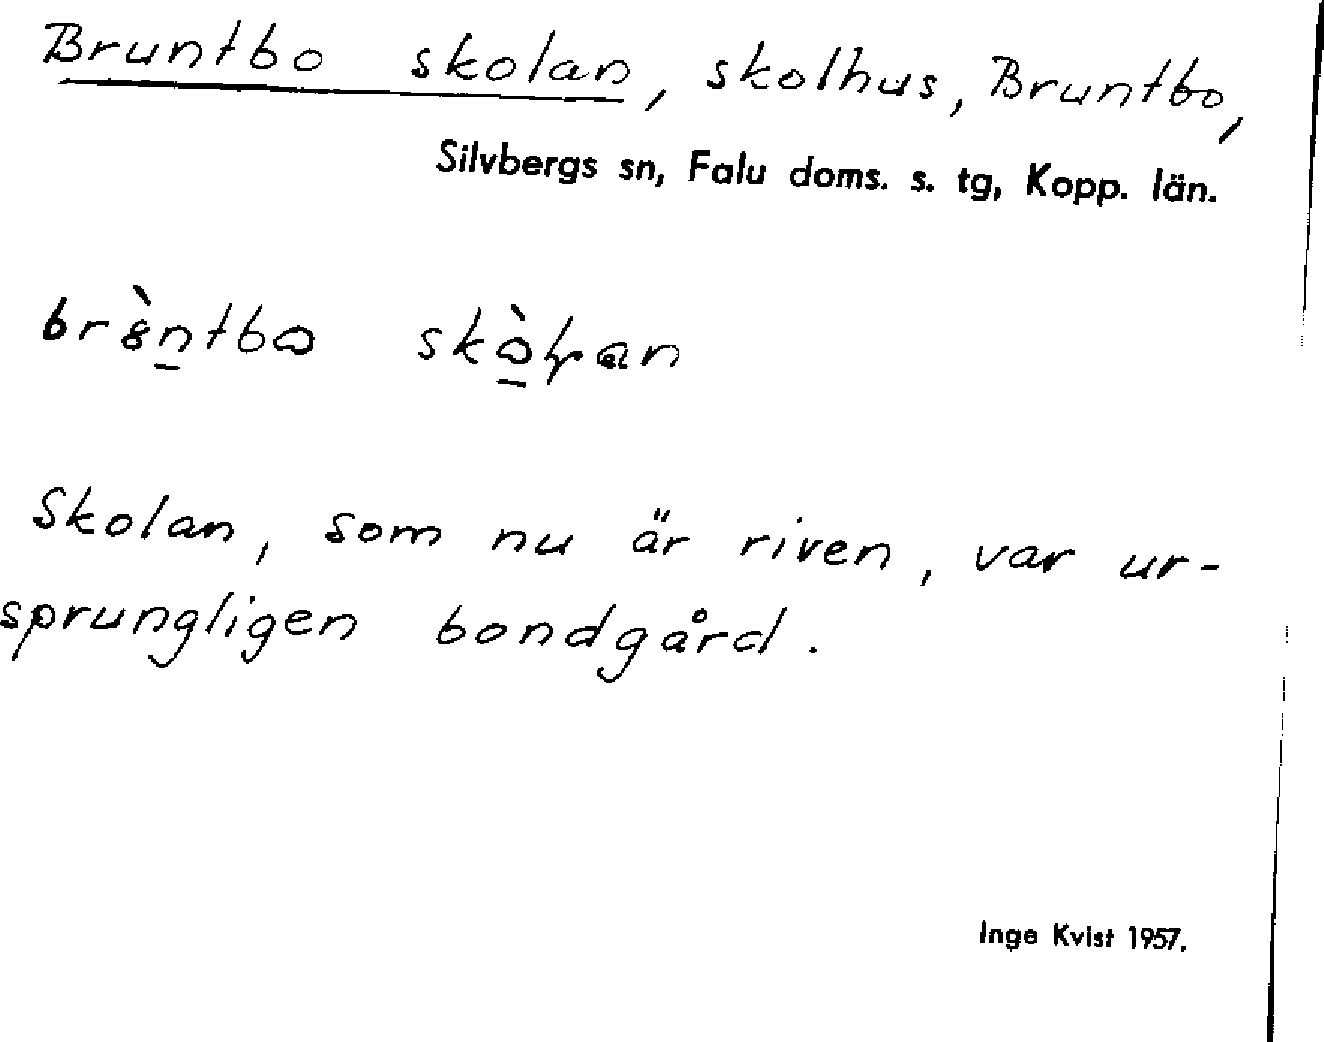 Bruntbo skolan, skolhus, Bruntbo,
Silvbergs sn, Falu doms. s. tg, Kopp. län.
Skolan, som nu är riven, var ur-
sprungligen bondgård.
Inge Kvist 1957.